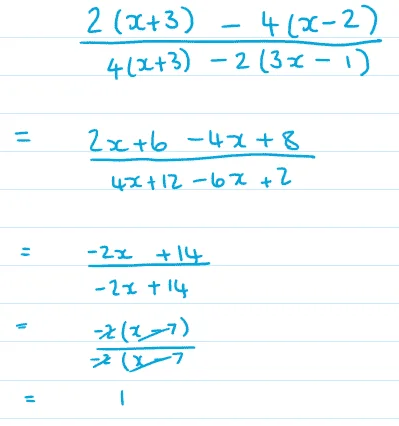 2(x+3) - 4(x-2)
4(x+3) - 2(3x - 1)
= 2x+6 -4x+8
4x+12 -6x+2
= -2x +14
-2x+14
= -2(x-7)
-2(x-7
= 1